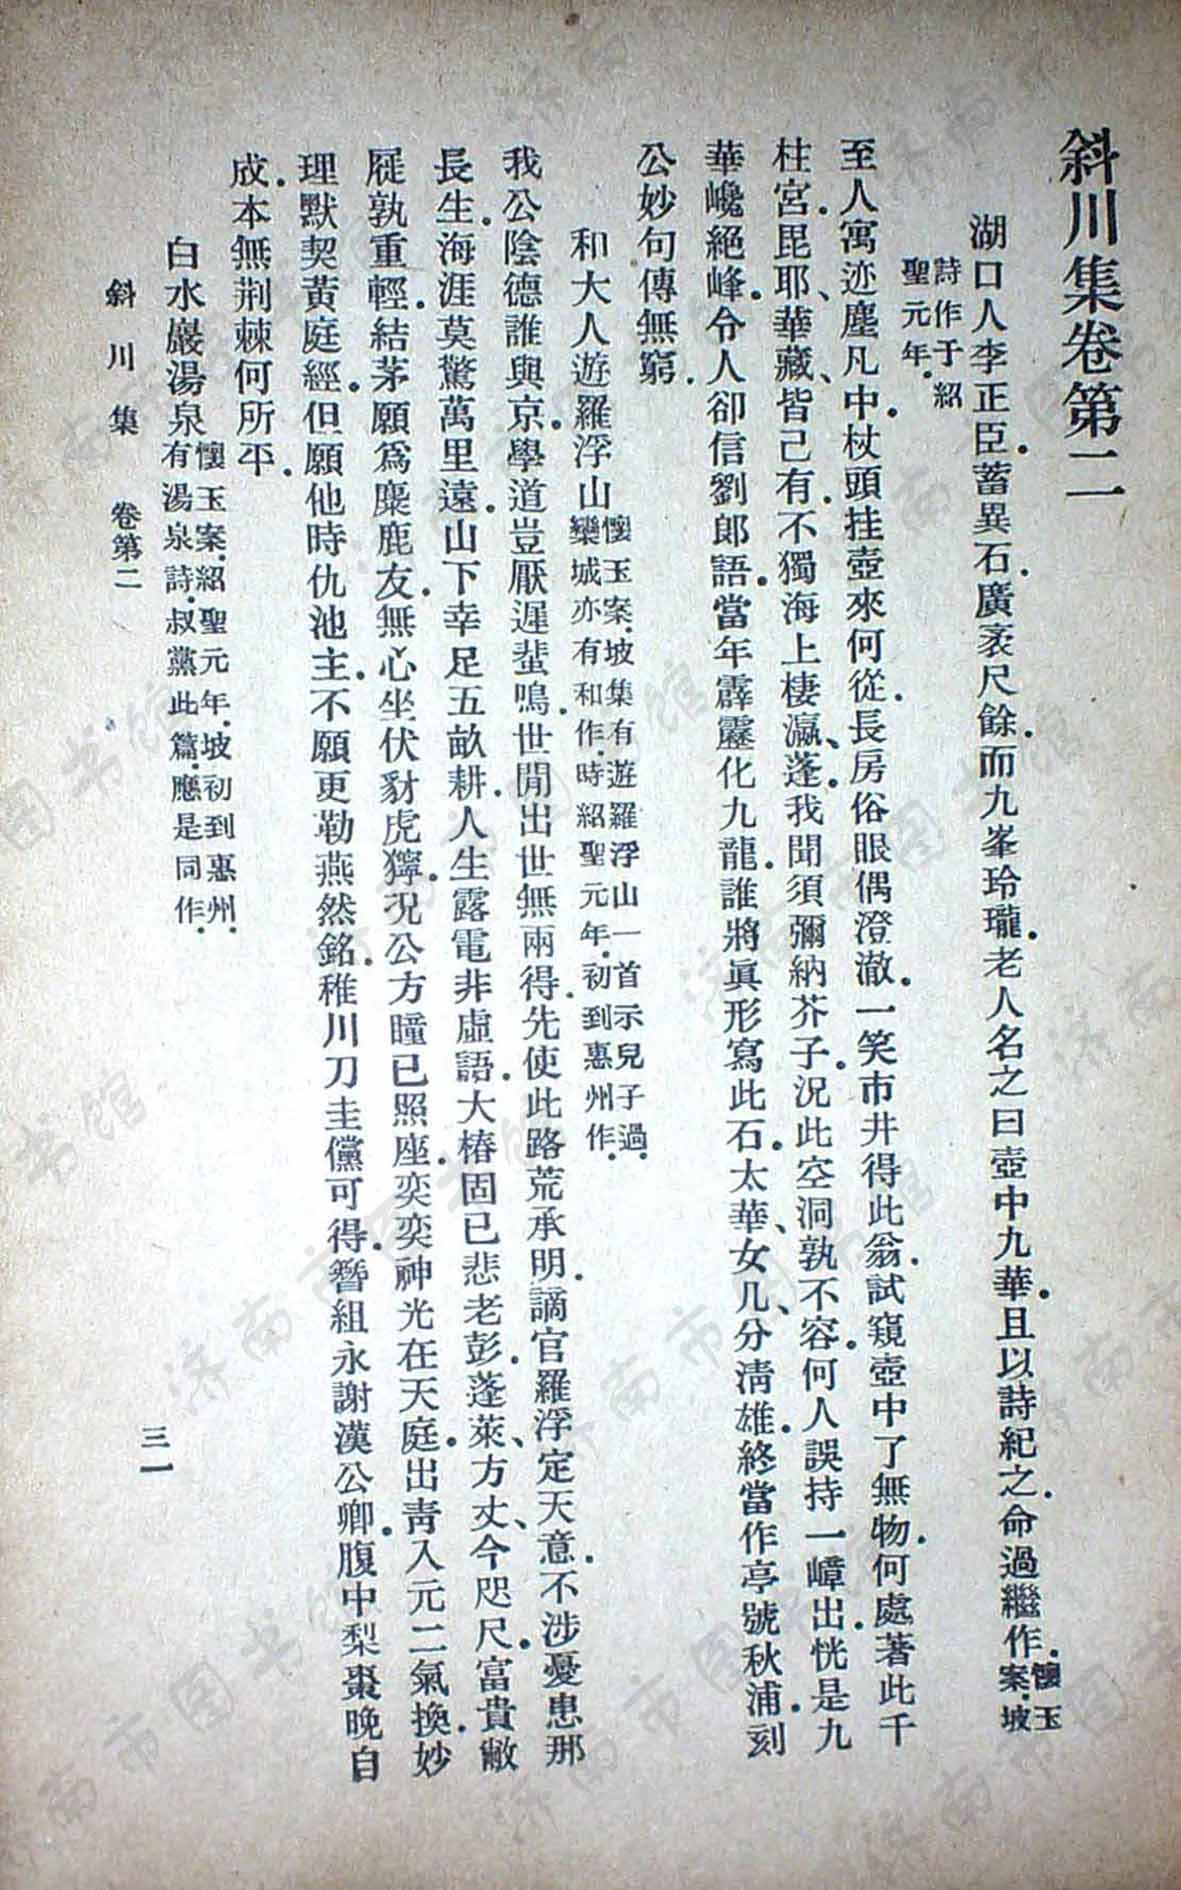 斜川集卷第二
湖口人李正臣．蓄異石．廣袤尺餘．而九峯玲瓏．老人名之曰壺中九華．且以詩紀之．命過繼作．懷玉案．坡
詩作于紹
聖元年．
至人寓迹塵凡中．杖頭挂壺來何從．長房俗眼偶澄澈．一笑市井得此翁．試窺壺中了無物．何處著此千
柱宮．毘耶、華藏、皆己有．不獨海上棲瀛、蓬．我聞須彌納芥子．況此空洞孰不容．何人誤持一嶂出．恍是九
華巉絕峰．令人卻信劉郎語．當年霹靂化九龍．誰將眞形寫此石．太華、女几、分淸雄．終當作亭號秋浦．刻
公妙句傳無窮．
和大人遊羅浮山懷玉案．坡集有遊羅浮山一首示兒子過．
欒城亦有和作．時紹聖元年．初到惠州作．
我公陰德誰與京．學道豈厭遲蜚鳴．世閒出世無兩得．先使此路荒承明．謫官羅浮定天意．不涉憂患那
長生．海涯莫驚萬里遠．山下幸足五畝耕．人生露電非虛語．大椿固已悲老彭．蓬萊、方丈、今咫尺．富貴敝
屣孰重輕．結茅願爲麋鹿友．無心坐伏豺虎獰．況公方瞳已照座．奕奕神光在天庭．出靑入元二氣換．妙
理默契黃庭經．但願他時仇池主．不願更勒燕然銘．稚川刀圭儻可得．簪組永謝漢公卿．腹中梨棗晚自
成．本無荆棘何所平．
白水巖湯泉懷玉案．紹聖元年．坡初到惠州．
有湯泉詩．叔黨此篇．應是同作．
斜川集 卷第二
三一